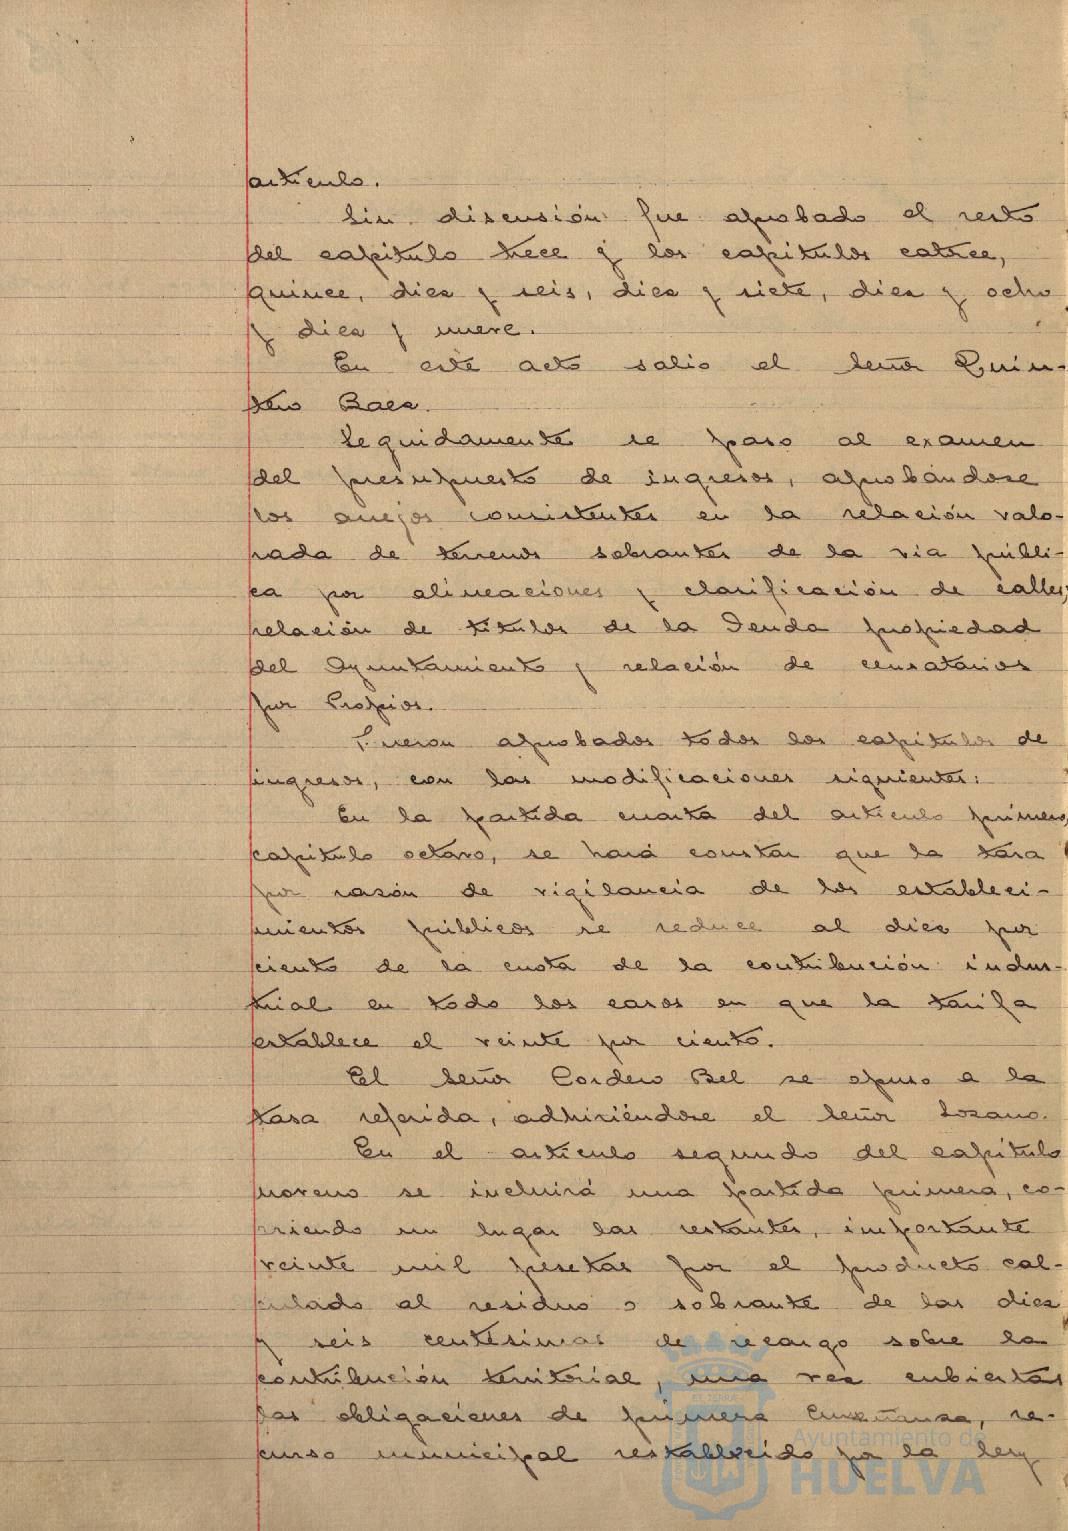 artículo.
Sin discusión fue aprobado el resto
del capítulo trece y los capítulos catorce,
quince, diez y seis, diez y siete, diez y ocho
y diez y nueve.
En este acto salio el Señor Quin-
tero Baez.
Seguidamente se paso al examen
del presupuesto de ingresos, aprobándose
los anejos consistentes en la relación valo-
rada de terrenos sobrantes de la via públi-
ca por alineaciones y clasificación de calles;
relación de titulos de la Deuda propiedad
del Ayuntamiento y relación de censatarios
por Propios.
Fueron aprobados todos los capítulos de
ingresos, con las modificaciones siguientes:
En la partida cuarta del artículo primero,
capítulo octavo, se hará constar que la tasa
por razón de vigilancia de los estableci-
mientos públicos se reduce al diez por
ciento de la cuota de la contribución indus-
trial en todo los casos en que la tarifa
establece el veinte por ciento.
El Señor Cordero Bel se opuso a la
tasa referida, adhiriéndose el Señor Lozano.
En el artículo segundo del capítulo
noveno se incluirá una partida primera, co-
rriendo un lugar las restantes, importante
veinte mil pesetas por el producto cal-
culado al residuo o sobrante de las diez
y seis centésimas de recargo sobre la
contribución territorial, una vez cubiertas
las obligaciones de primera Enseñanza, re-
curso municipal restablecido por la ley
Ayuntamiento de
HUELVA